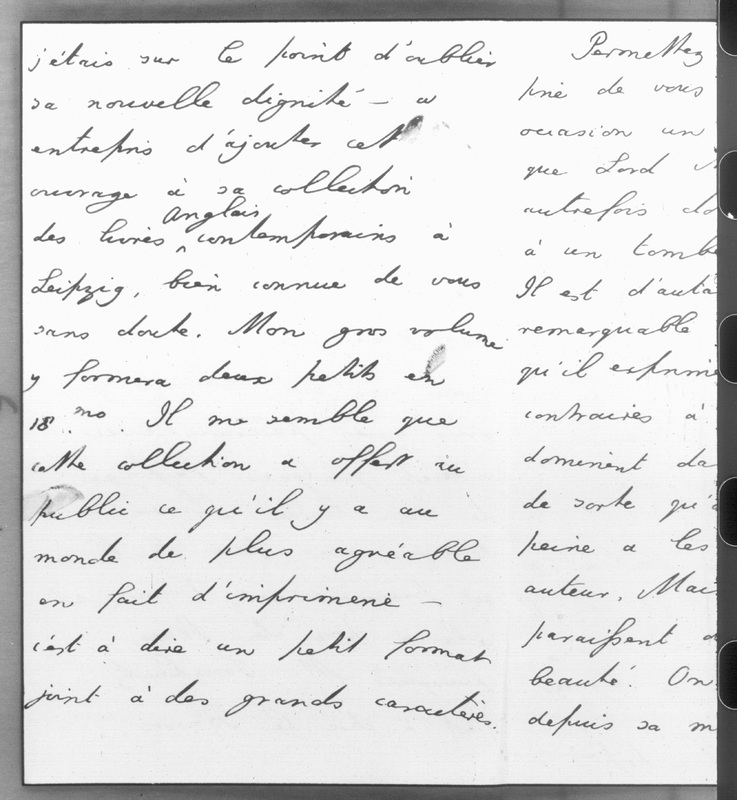 j'étais sur le point d'oublier
sa nouvelle dignité — a
entrepris d'ajouter cet
ouvrage à sa collection
Anglais
des livres ^ contemporains à
Leipzig, bien connue de vous
sans doute. Mon gros volume
y formera deux petits en
18mo. Il me semble que
cette collection a offert au
public ce qu'il y a au
monde de plus agréable
en fait d'imprimerie —
c'est à dire un petit format
joint à des grands caractères.
Permettez
de vous
occasion un
que Lord
autrefois
à un
Il est
remarquable
qu'il
contraires à
dominent
de sorte
peine a les
auteur.
paraissent
beauté. On
depuis sa